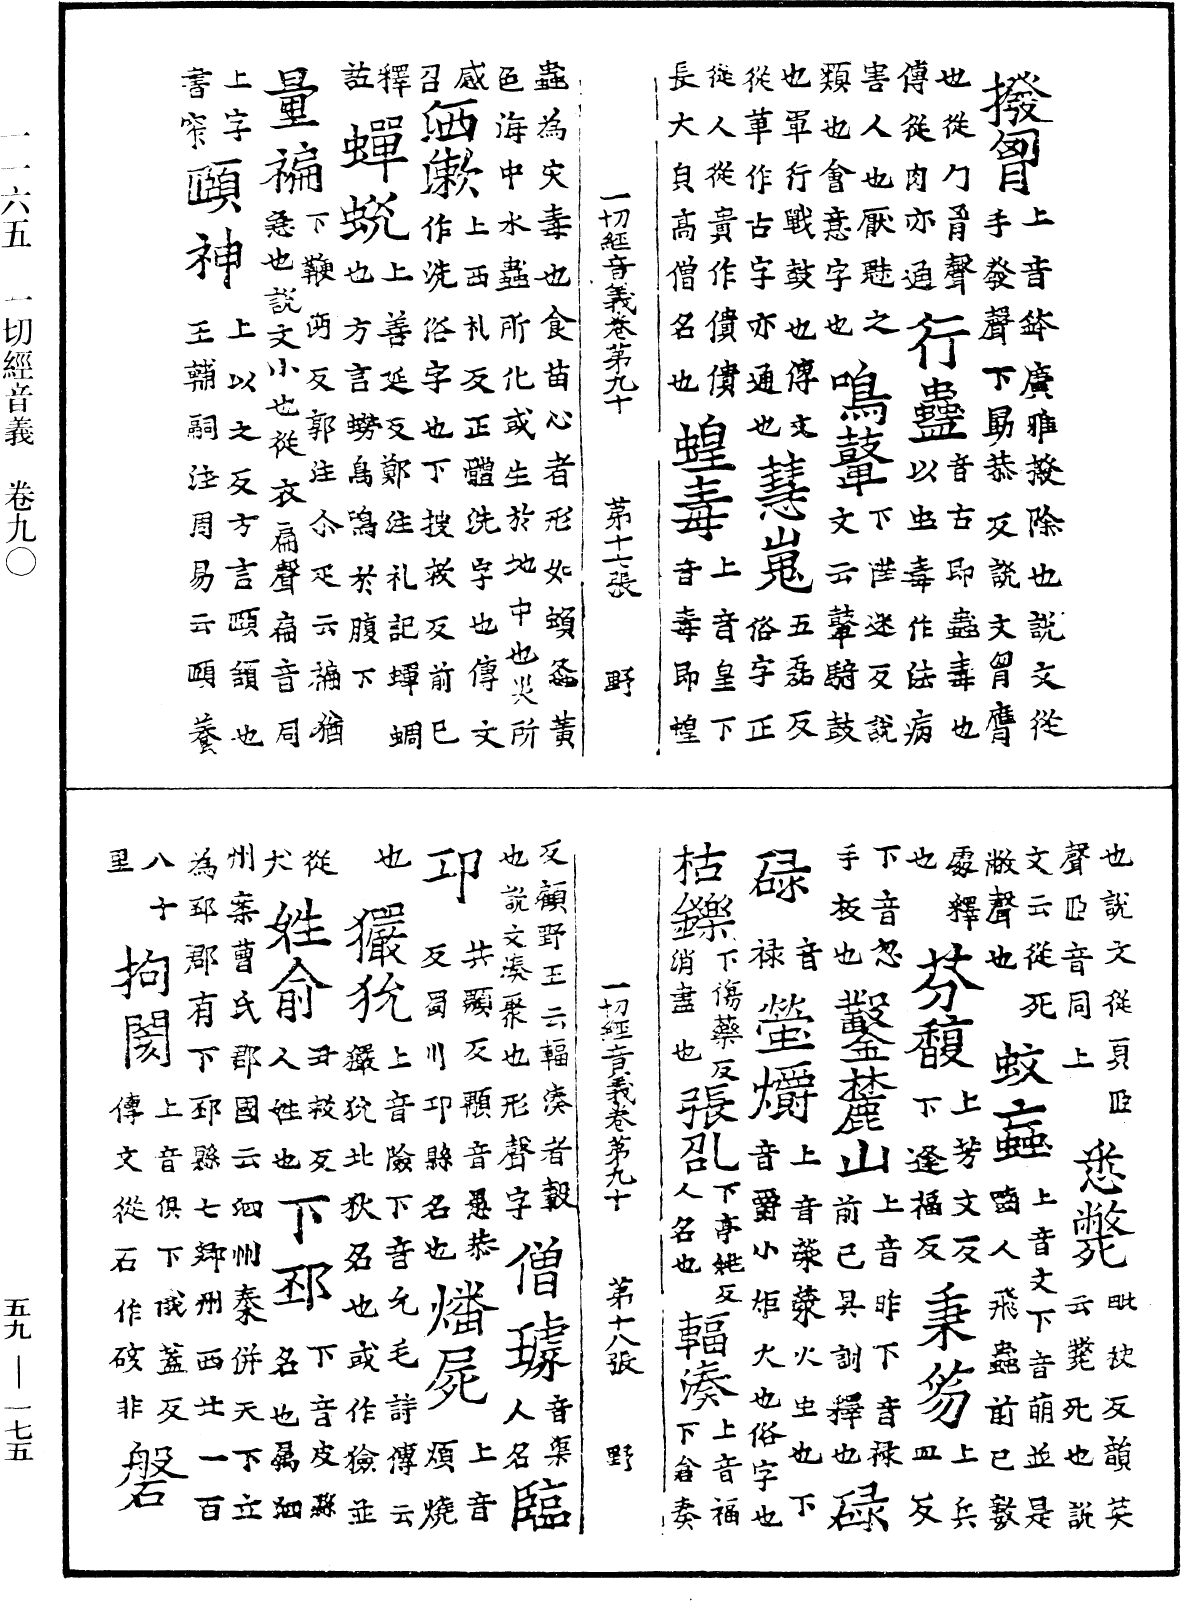 撥胷上音鉢廣雅撥除也說文從
手發聲下勗恭反說文胷膺
也從勹胷聲行蠱音古即蠱毒也
傳從肉亦通以虫毒作法病
害人也厭魅之
類也會意字也鳴鼙下陛迷反說文云鼙騎鼓
也軍行戰鼓也傳文
從革作古字亦通也慧嵬五磊反俗字正
從人從貴作僓僓
長大皃高僧名也蝗毒上音皇下音毒即蝗
一切經音義卷第九十 第十七張 野
蟲為灾毒也食苗心者形如螟螽黃
色海中水蟲所化或生於地中也災所
感洒漱上西礼反正體洗字也傳文
召作洗俗字也下搜救反前已
釋蟬蛻上善延反鄭注礼記蟬蜩
訖也方言蟧鳥鴻於腹下
量褊下鞭沔反郭注尒疋云褊猶
急也說文小也從衣扁聲扁音同
上字頤神上以之反方言頤頷也
書窄王輔嗣注周易云頤養
也說文從頁𦣞
聲𦣞音同上悉斃毗袂反韻英
文云從死云斃死也說
敝聲也蚊蝱上音文下音萌並是
齧人飛蟲前已數
處釋芬馥上芳文反
也下逢福反秉笏上兵皿反
下音忽
手板也鑿麓山上音昨下音祿
前已具訓釋也碌
碌音祿螢爝上音滎滎火虫也下
音爵小炬火也俗字也
枯鑠下傷藥反
消盡也張孔下亭姚反
人名也輻湊上音福下倉奏
一切經音義卷第九十 第十八張 野
反顧野王云輻湊者轂
也說文湊聚也形聲字僧璩音渠人名臨
邛共顒反顒音愚恭
反蜀川邛縣名也燔屍上音煩燒
也玁狁上音險下音允毛詩傳云
玁狁北狄名也或作獫並
從犬姓俞丑救反
人姓也下邳下音皮縣名也屬泗
州案曹氏郡國云泗州秦併天下立
為邳郡有下邳縣七鄉州西北一百
八十里拘閡上音俱下𡽗蓋反
傳文從石作硋非磐
一一六五 一切經音義 卷九〇 五九—一七五